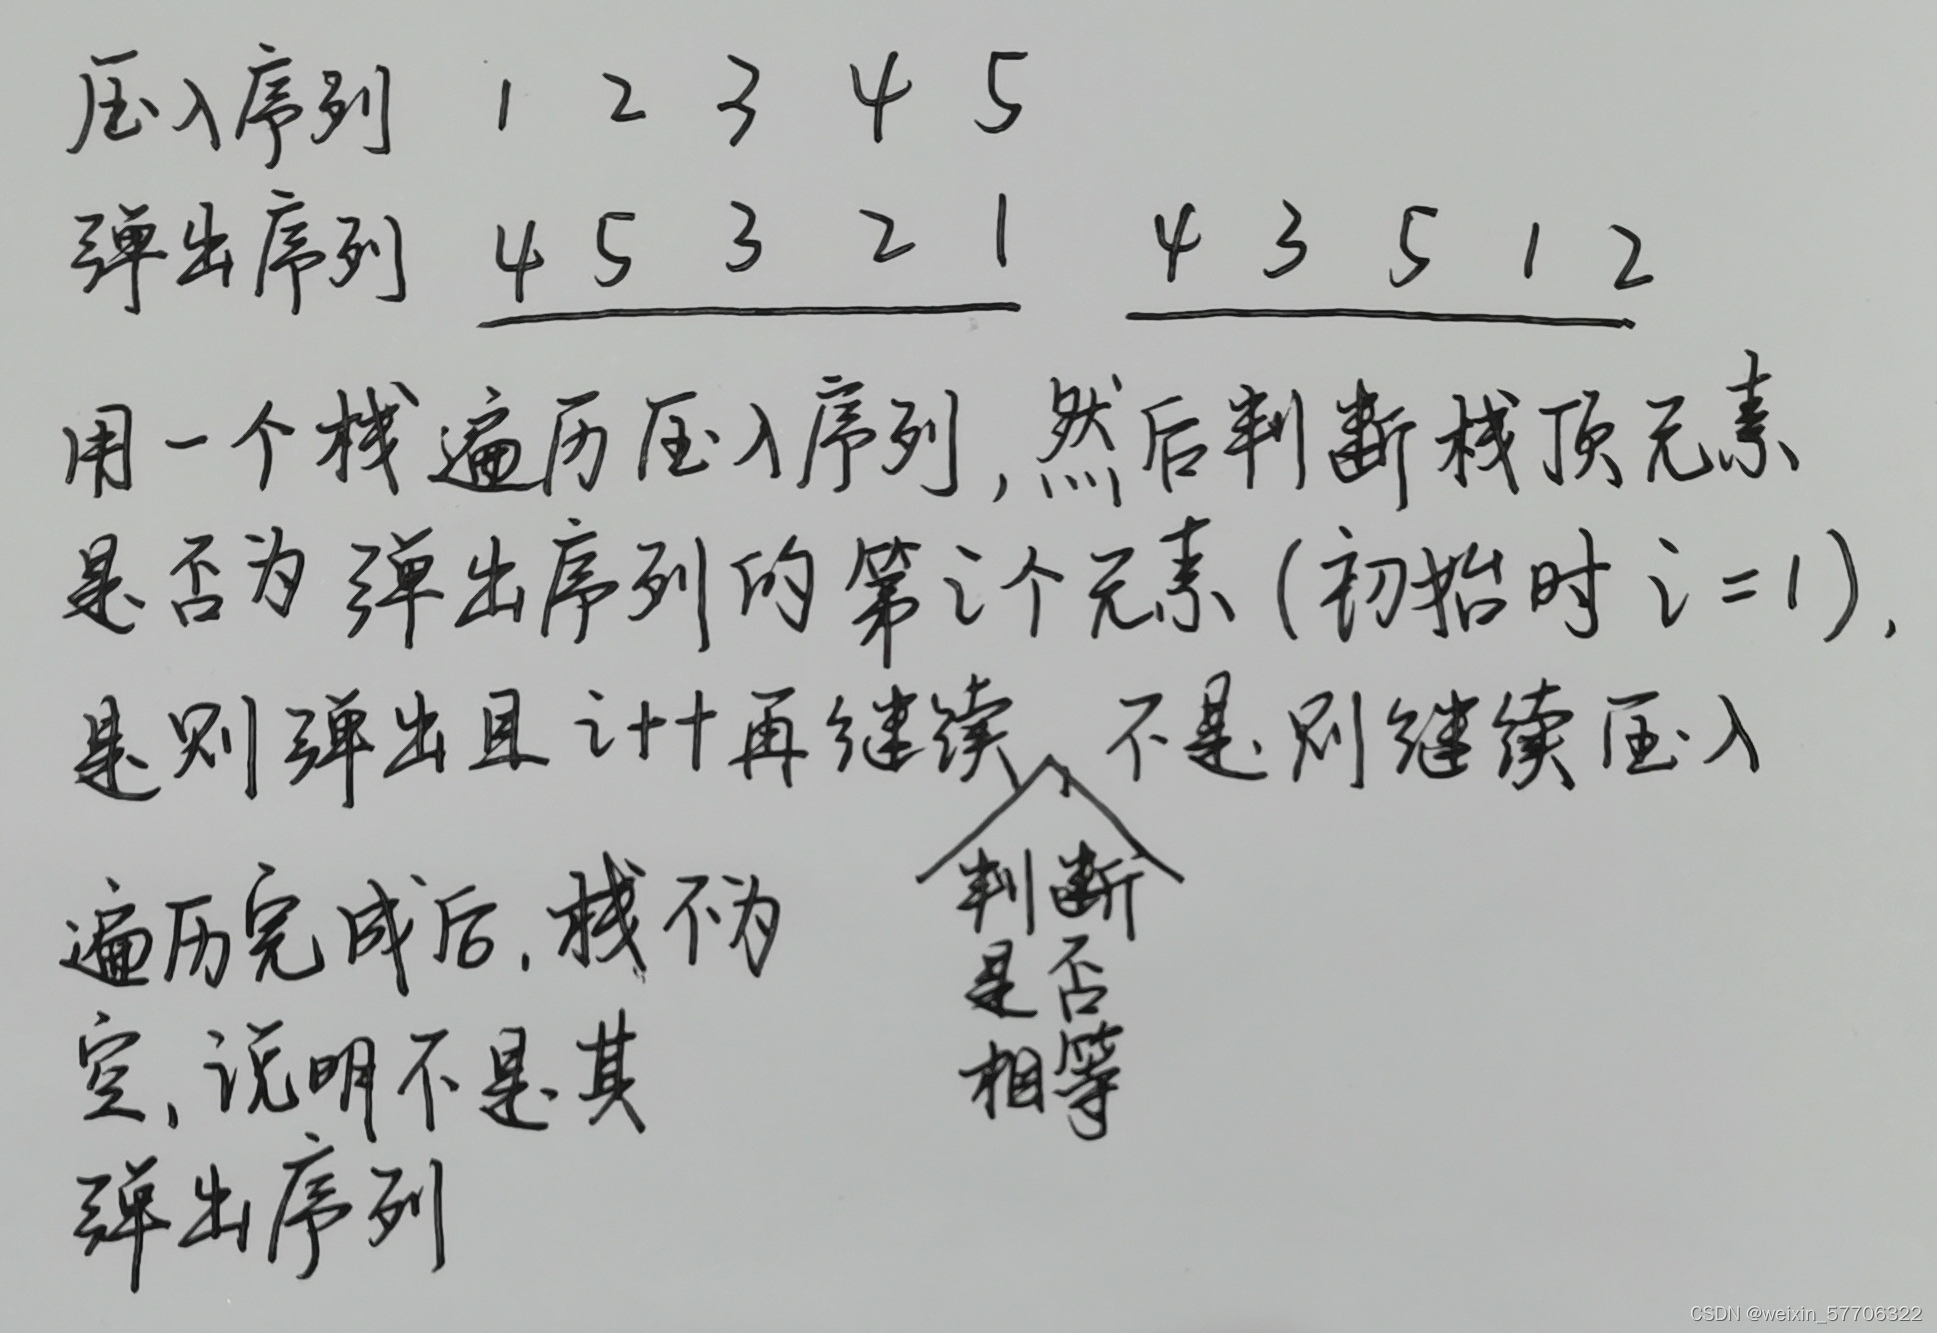 压入序列 1 2 3 4 5
弹出序列 4 5 3 2 1 4 3 5 1 2
用一个栈遍历压入序列,然后判断栈顶元素
是否为弹出序列的第i个元素(初始时i=1),
是则弹出且i++再继续、不是则继续压入
判断
是否
相等
遍历完成后,栈不为
空,说明不是其
弹出序列
CSDN @weixin_57706322